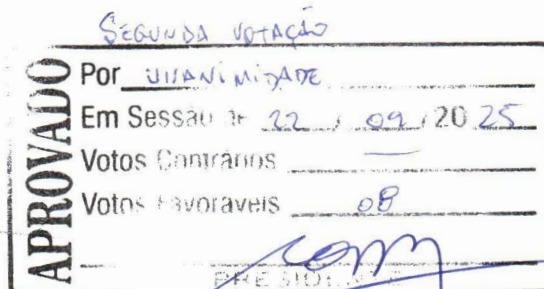 SEGUNDA VOTAÇÃO
APROVADO
Por UNANIMIDADE
Em Sessão de 22 / 09 / 20 25
Votos Contrários —
Votos Favoráveis 08
PRESIDENTE